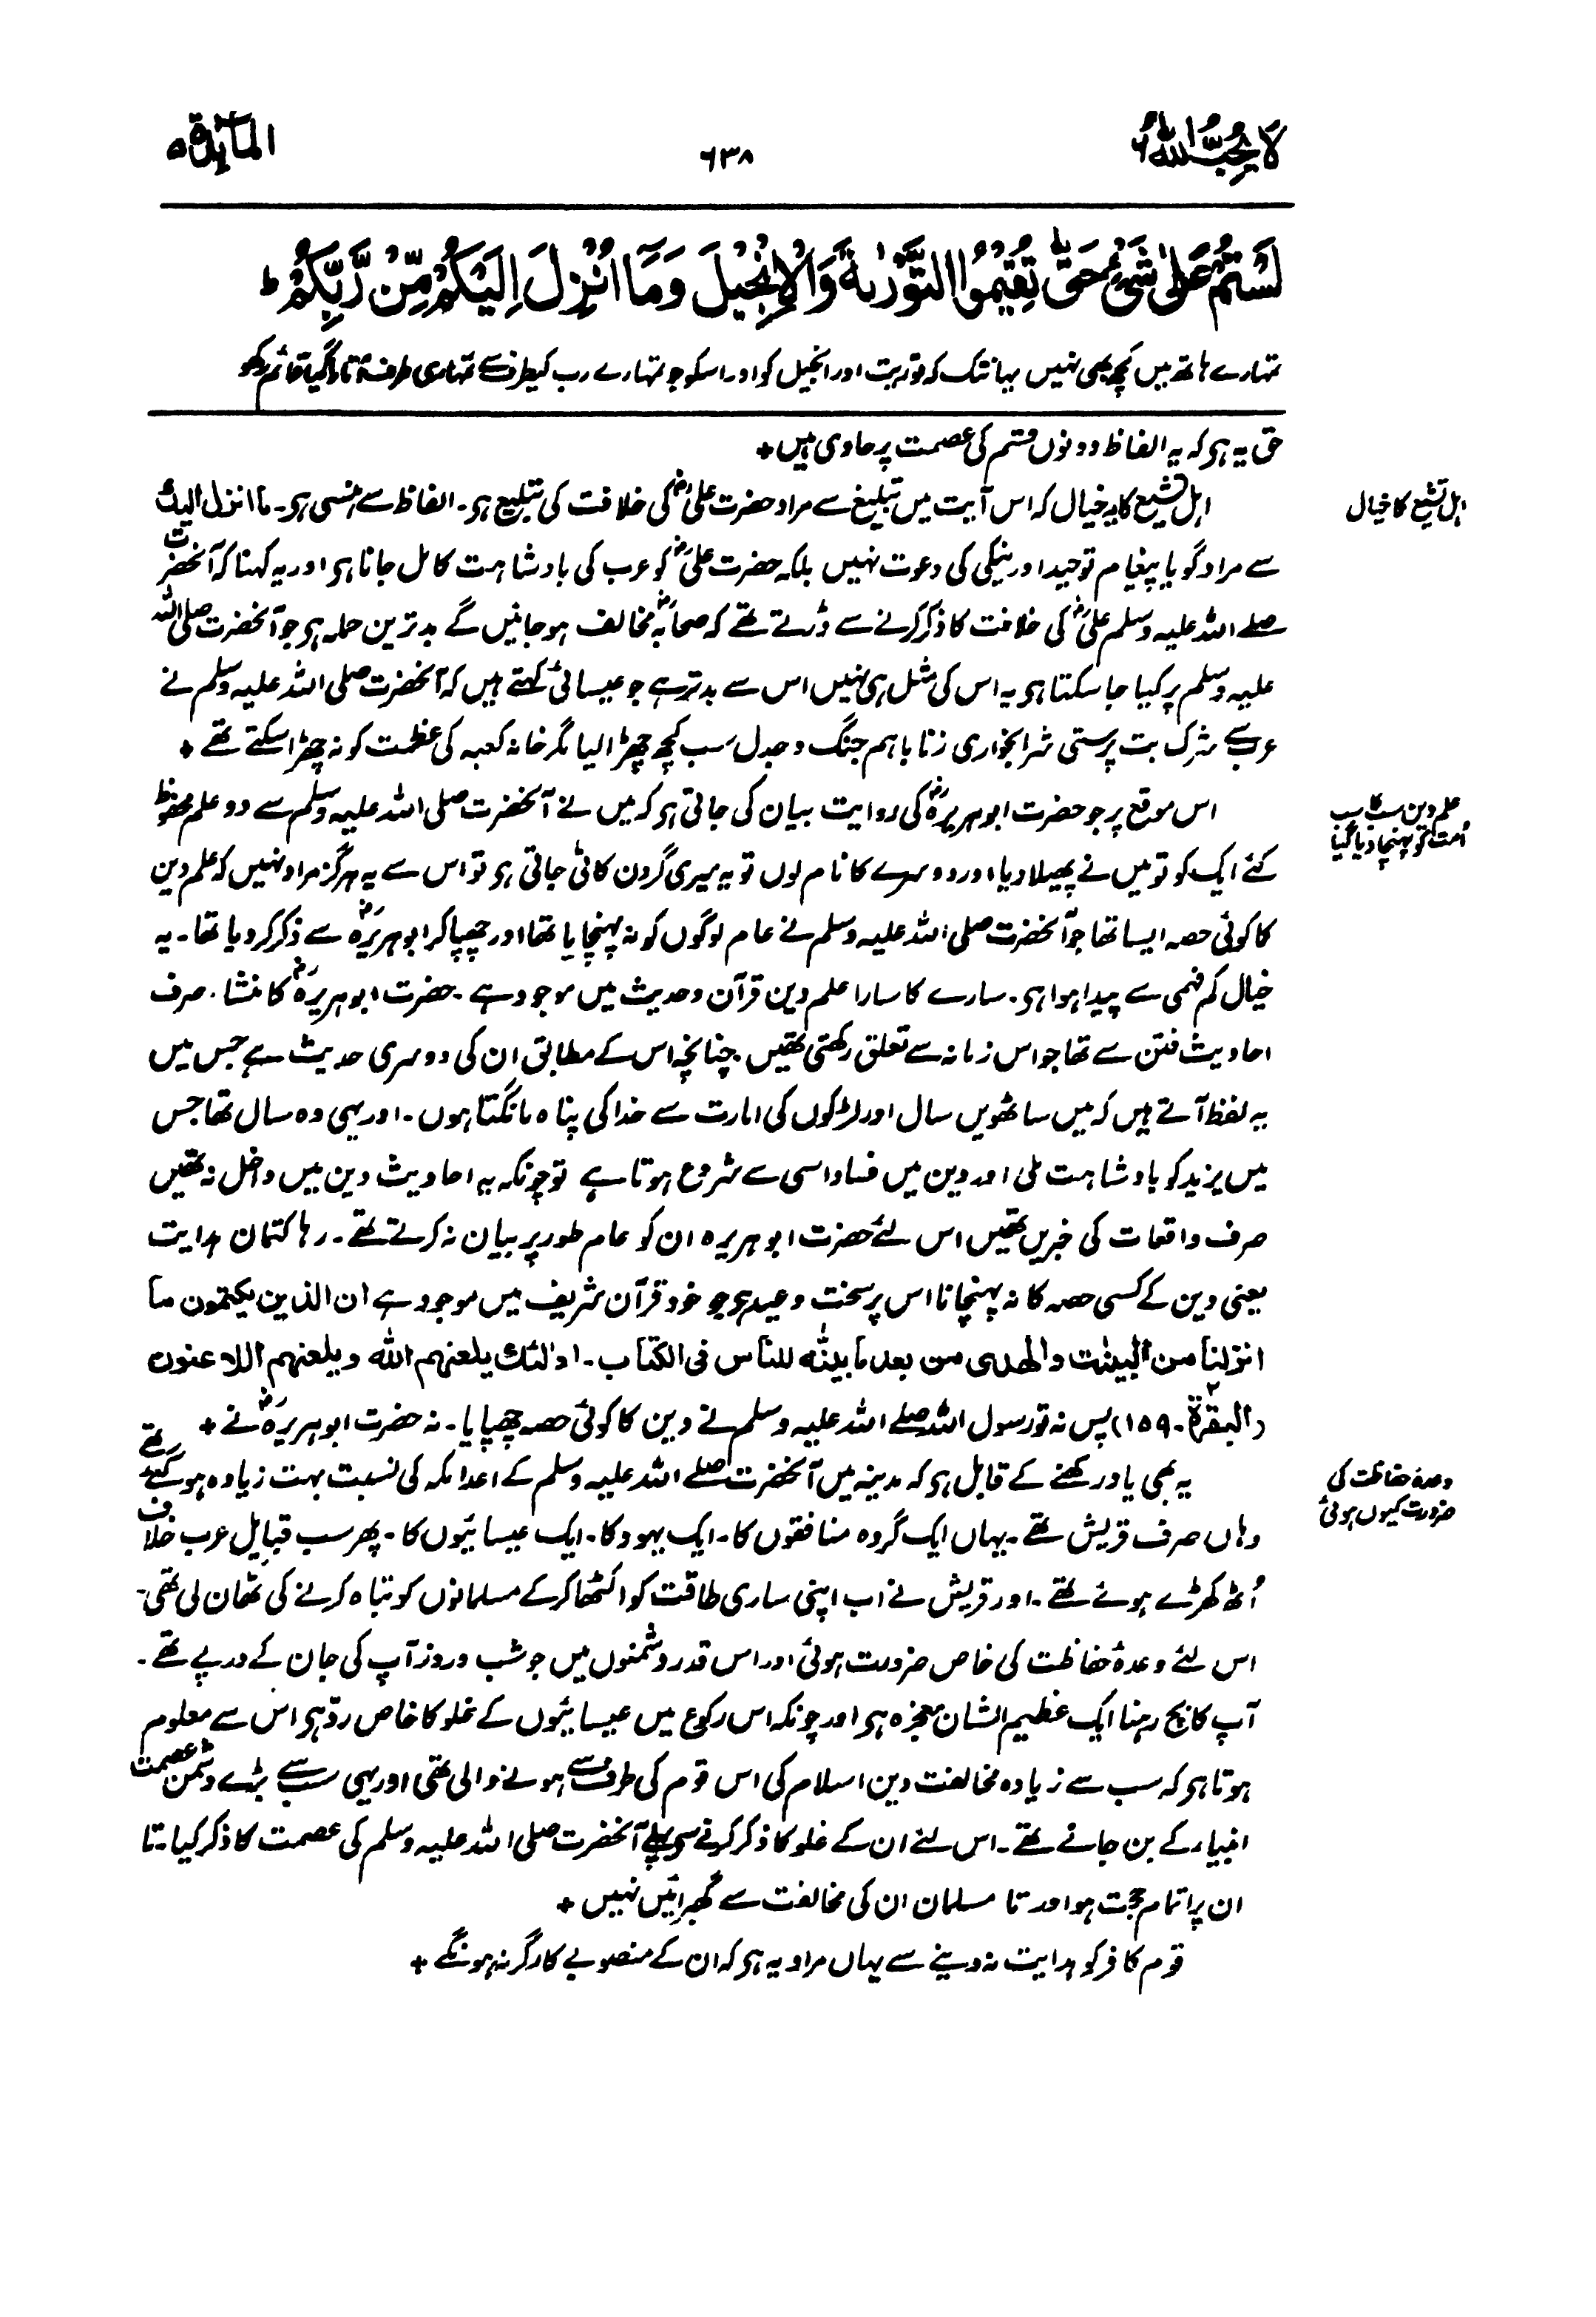 لَا يُحِبُّ اللّٰهُ ۶
۶۳۸
المآئدة ۵
لَسْتُمْ عَلٰى شَيْءٍ حَتّٰى تُقِيْمُوا التَّوْرٰىةَ وَالْاِنْجِيْلَ وَمَآ اُنْزِلَ اِلَيْكُمْ مِّنْ رَّبِّكُمْ ؕ
تمہارے ہاتھ میں کچھ بھی نہیں یہانتک کہ توریت اور انجیل کو اور اسکو جو تمہارے رب کیطرف سے تمہاری طرف اتارا گیا قائم رکھو
حق یہ ہی کہ یہ الفاظ دونوں قسم کی عصمت پر حاوی ہیں +
اہل تشیع کا خیال
اہل تشیع کا یہ خیال کہ اس آیت میں تبلیغ سے مراد حضرت علیؓ کی خلافت کی تبلیغ ہی۔ الفاظ سے ہنسی ہی۔ ما انزل الیك
سے مراد گویا پیغام توحید اور نیکی کی دعوت نہیں بلکہ حضرت علیؓ کو عرب کی بادشاہت کا مل جانا ہی اور یہ کہنا کہ آنحضرت
صلے اللہ علیہ وسلم علیؓ کی خلافت کا ذکر کرنے سے ڈرتے تھے کہ صحابہؓ مخالف ہو جائیں گے بدترین حملہ ہی جو آنحضرت صلی اللہ
علیہ وسلم پر کیا جا سکتا ہی یہ اس کی مثل ہی نہیں اس سے بدتر ہے جو عیسائی کہتے ہیں کہ آنحضرت صلی اللہ علیہ وسلم نے
عرب سے شرک بت پرستی شرابخواری زنا باہم جنگ و جدل سب کچھ چھڑا لیا مگر خانہ کعبہ کی عظمت کو نہ چھڑا سکتے تھے +
علم دین سب کا سب
اُمت کو پہنچا دیا گیا
اس موقع پر جو حضرت ابوہریرہؓ کی روایت بیان کی جاتی ہی کہ میں نے آنحضرت صلی اللہ علیہ وسلم سے دو علم محفوظ
کئے ایک کو تو میں نے پھیلا دیا اور دوسرے کا نام لوں تو یہ میری گردن کاٹی جاتی ہی تو اس سے یہ ہرگز مراد نہیں کہ علم دین
کا کوئی حصہ ایسا تھا جو آنحضرت صلی اللہ علیہ وسلم نے عام لوگوں کو نہ پہنچایا تھا اور چھپا کر ابوہریرہؓ سے ذکر کر دیا تھا۔ یہ
خیال کم فہمی سے پیدا ہوا ہی۔ سارے کا سارا علم دین قرآن و حدیث میں موجود ہے۔ حضرت ابوہریرہؓ کا منشاء صرف
احادیث فتن سے تھا جو اس زمانہ سے تعلق رکھتی تھیں۔ چنانچہ اس کے مطابق ان کی دوسری حدیث ہے جس میں
یہ لفظ آتے ہیں کہ میں ساٹھویں سال اور لڑکوں کی امارت سے خدا کی پناہ مانگتا ہوں۔ اور یہی وہ سال تھا جس
میں یزید کو بادشاہت ملی اور دین میں فساد اسی سے شروع ہوتا ہے تو چونکہ یہ احادیث دین میں داخل نہ تھیں
صرف واقعات کی خبریں تھیں اس لئے حضرت ابوہریرہ ان کو عام طور پر بیان نہ کرتے تھے۔ رہا کتمان ہدایت
یعنی دین کے کسی حصہ کا نہ پہنچانا اس پر سخت وعید ہی جو خود قرآن شریف میں موجود ہے ان الذین یکتمون ما
انزلنا من البینٰت والهدی من بعد ما بینّٰه للناس فی الکتاب۔ اولٰئك یلعنهم اللّٰه ویلعنهم اللاعنون
(البقرۃ۲۔ ۱۵۹) پس نہ تو رسول اللہ صلے اللہ علیہ وسلم نے دین کا کوئی حصہ چھپایا۔ نہ حضرت ابوہریرہؓ نے +
وعدۂ حفاظت کی
ضرورت کیوں ہوئی
یہ بھی یاد رکھنے کے قابل ہی کہ مدینہ میں آنحضرت صلے اللہ علیہ وسلم کے اعدا مکہ کی نسبت بہت زیادہ ہو گئے تھے
وہاں صرف قریش تھے۔ یہاں ایک گروہ منافقوں کا۔ ایک یہود کا۔ ایک عیسائیوں کا۔ پھر سب قبایل عرب خلاف
اُٹھ کھڑے ہوئے تھے۔ اور قریش نے اب اپنی ساری طاقت کو اکٹھا کرکے مسلمانوں کو تباہ کرنے کی ٹھان لی تھی۔
اس لئے وعدۂ حفاظت کی خاص ضرورت ہوئی اور اس قدر دشمنوں میں جو شب و روز آپ کی جان کے درپے تھے۔
آپ کا بچ رہنا ایک عظیم الشان معجزہ ہی اور چونکہ اس رکوع میں عیسائیوں کے غلو کا خاص ردّ ہی اس سے معلوم
ہوتا ہی کہ سب سے زیادہ مخالفت دین اسلام کی اس قوم کی طرف سے ہونے والی تھی اور یہی سب سے بڑے دشمن عصمت
انبیاء کے بن جانے تھے۔ اس لئے ان کے غلو کا ذکر کرنے سی پہلے آنحضرت صلی اللہ علیہ وسلم کی عصمت کا ذکر کیا۔ تا
ان پر اتمام حجت ہو اور تا مسلمان ان کی مخالفت سے گھبرائیں نہیں +
قوم کافر کو ہدایت نہ دینے سے یہاں مراد یہ ہی کہ ان کے منصوبے کارگر نہ ہونگے +